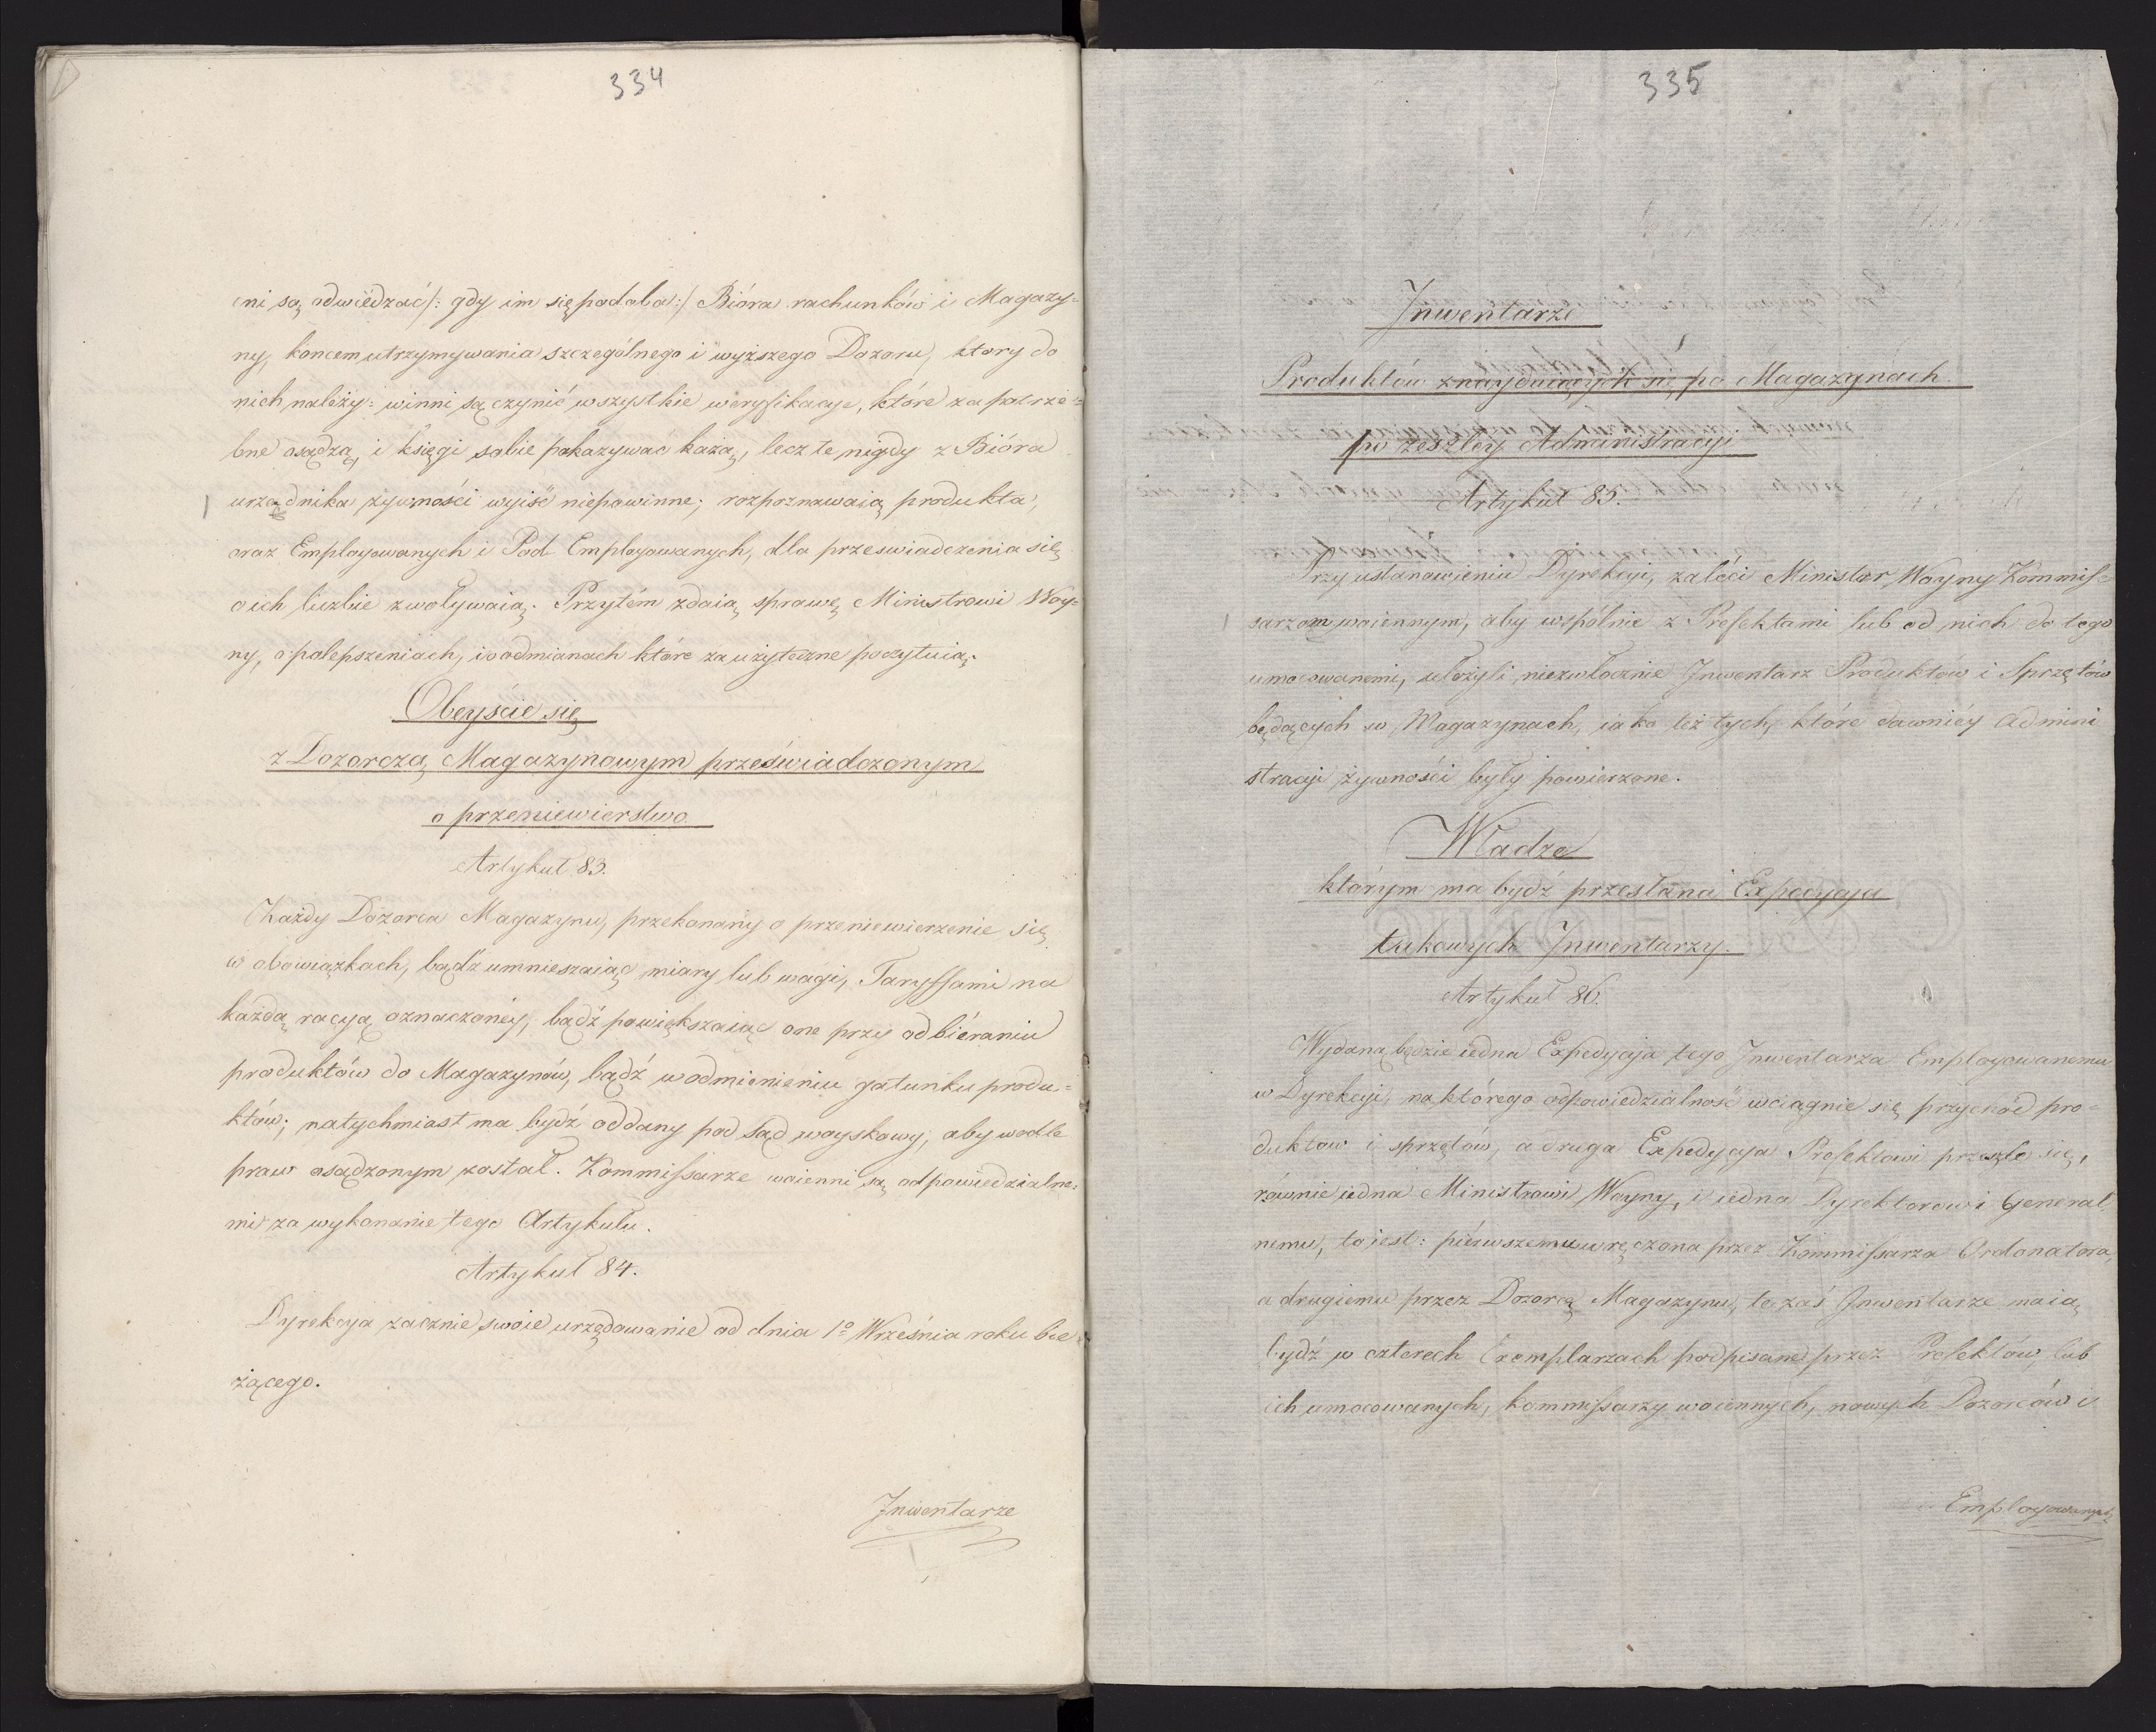 334
ni są odwiedzać /: gdy im się podoba :/ Bióra rachunków i Magazy=
ny, koncem utrzymywania szczególnego i wyższego Dozoru, ktory do
nich należy: winni są czynić wszystkie weryfikacye, które za potrze=
bne osądzą, i księgi sobie pokazywac każą, lecz te nigdy z Bióra
urzędnika żywności wyiść niepowinne; rozpoznawaią produkta,
oraz Employowanych i Pod Employowanych, dla przeswiadczenia się
o ich liczbie zwoływaią. Przytém zdaią sprawę Ministrowi Woy=
ny, o polepszeniach, i o odmianach które za użyteczne poczytuią.
Obeyście się
z Dozorczą Magazynowym przeświadczonym
o przeniewierstwo
Artykuł 83.
Każdy Dozorca Magazynu, przekonany o przeniewierzenie się
w obowiązkach, bądź umnieszaiąc miary lub wagi, Taryffami na
każdą racyą oznaczonéy, bądź powiększaiąc one przy odbiéraniu
produktów do Magazynów, bądź w odmienieniu gatunku produ=
któw; natychmiast ma bydź oddany pod Sąd woyskowy, aby wedle
praw osądzonym został. Kommissarze woienni są odpowiedzialne=
mi za wykonanie tego Artykułu.
Artykuł 84.
Dyrekcya zacznie swoie urzędowanie od dnia 1º Września roku bie
żącego.
Inwentarze
335
Inwentarze
Produktów znayduiących się po Magazynach
po zeszłey Administracyi
Artykuł 85.
Przy ustanowieniu Dyrekcyi, zaleci Minister Woyny Kommis=
sarzom woiennym, aby wspólnie z Prefektami lub od nich do tego
umocowanemi, ułożyli niezwłocznie Inwentarz Produktów i Sprzętów
będących w Magazynach, iako też tych, które dawniéy Admini
stracyi żywności były powierzone.
Władze
którym ma bydź przesłana Expedycya
takowych Inwentarzy.
Artykuł 86.
Wydaną będzie iedna Expedycya tego Inwentarza Employowanemu
w Dyrekcyi, na którego odpowiedzialność wciągnie się przychód pro=
duktow i sprzętów, a druga Expedycya Prefektowi prześle się,
równie iedna Ministrowi Woyny, i iedna Dyrektorowi General
nemu, to iest: piérwszemu wręczona przez Kommissarza Ordonatora,
a drugiemu przez Dozorcę Magazynu, te zaś Inwentarze maią
bydź w czterech Exemplarzach podpisane przez Prefektów, lub
ich umocowanych, kommissarzy woiennych, nowych Dozorców i
Employowanych